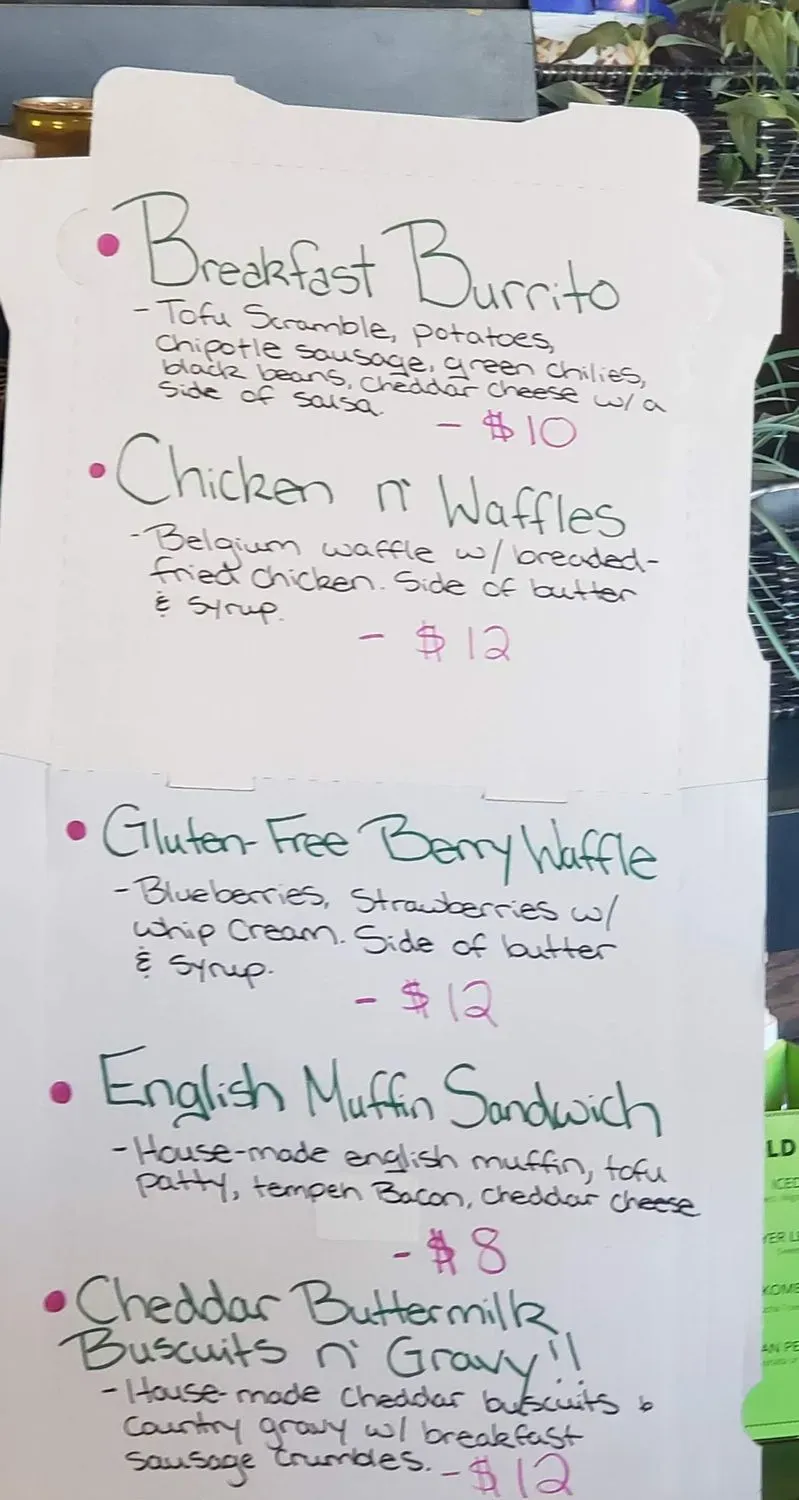 • Breakfast Burrito
- Tofu Scramble, potatoes,
chipotle sausage, green chilies,
black beans, cheddar cheese w/ a
side of salsa.
- $10
• Chicken n' Waffles
- Belgium waffle w/ breaded-
fried chicken. Side of butter
& syrup.
- $12
• Gluten-Free Berry Waffle
- Blueberries, Strawberries w/
whip cream. Side of butter
& syrup.
- $12
• English Muffin Sandwich
- House-made english muffin, tofu
patty, tempeh Bacon, cheddar cheese
- $8
• Cheddar Buttermilk
Buscuits n' Gravy!!
- House-made cheddar buscuits &
country gravy w/ breakfast
sausage crumbles. - $12
LD
ICED
YER L
KOMB
AN PE